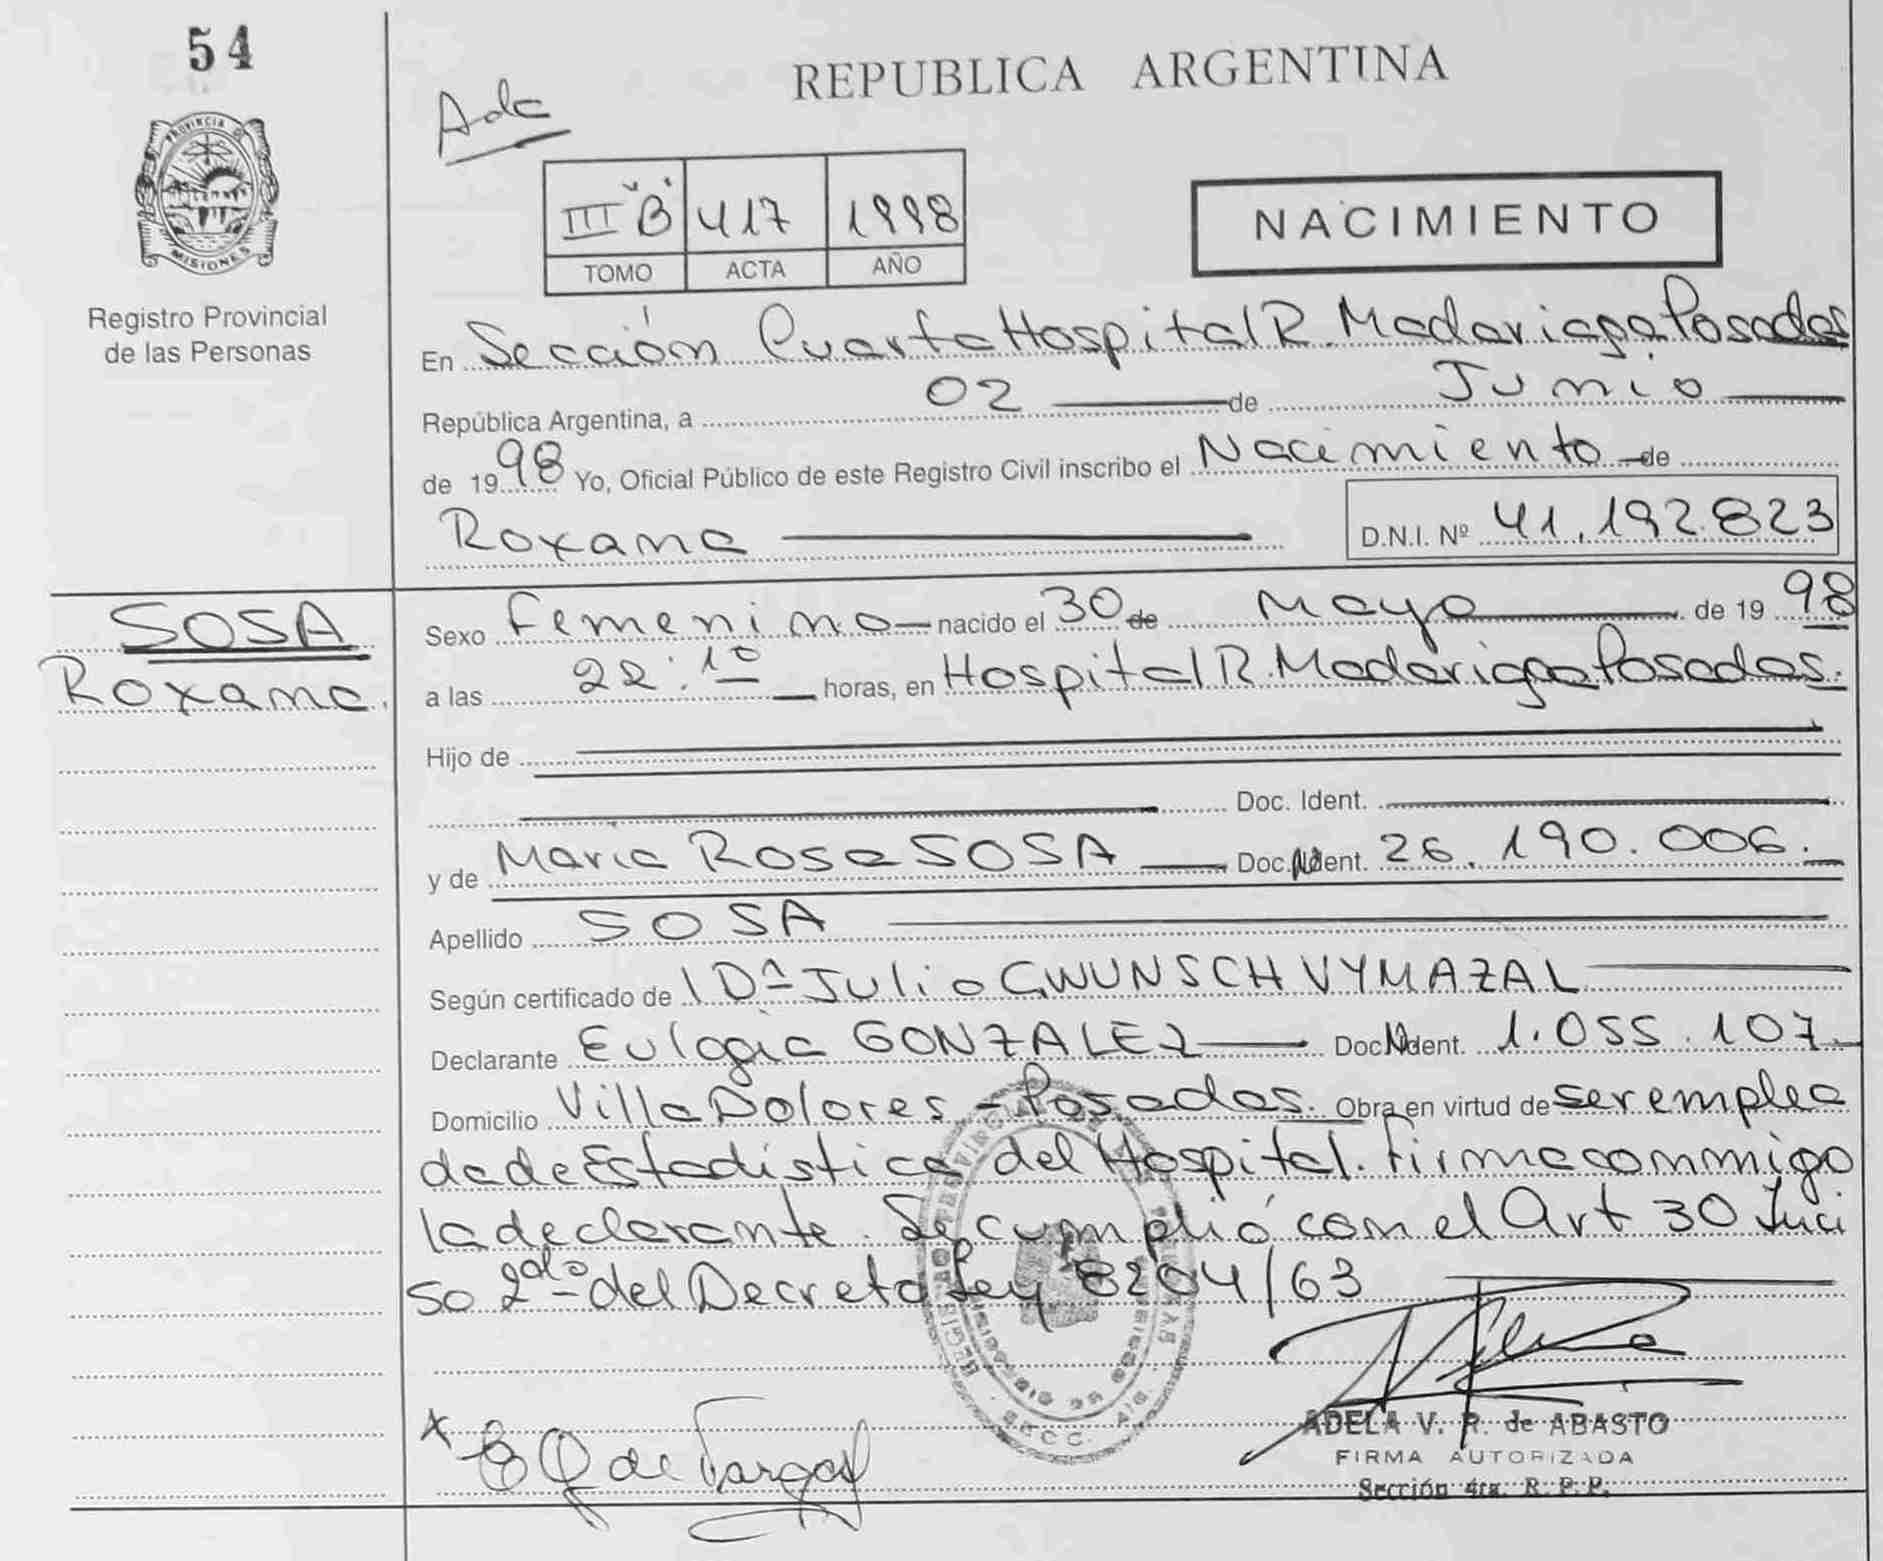 54
REPUBLICA ARGENTINA
PROVINCIA DE
MISIONES
Registro Provincial
de las Personas
III "B" 417 1998
TOMO ACTA AÑO
NACIMIENTO
En Sección Cuarta Hospital R. Madariaga Posadas
República Argentina, a 02 de Junio
de 1998 Yo, Oficial Público de este Registro Civil inscribo el Nacimiento de
Roxana D.N.I. Nº 41.192.823
SOSA
Roxana.
Sexo Femenino nacido el 30 de Mayo de 1998
a las 22:10 horas, en Hospital R. Madariaga Posadas.
Hijo de
Doc. Ident.
y de Maria Rosa SOSA Doc. Ident. 26.190.006.
Apellido SOSA
Según certificado de Julio G WUNSCH VYMAZAL
Declarante Eulogia GONZALEZ Doc. Ident. 1.055.107
Domicilio Villa Dolores - Posadas. Obra en virtud de ser emplea
da de Estadística del Hospital. Firma conmigo
la declarante. Se cumplió con el Art 30 Inci
so 2do del Decreto Ley 8204/63
x
de Vargas
ADELA V. R. de ABASTO
FIRMA AUTORIZADA
Sección 4ta. R. P. P.